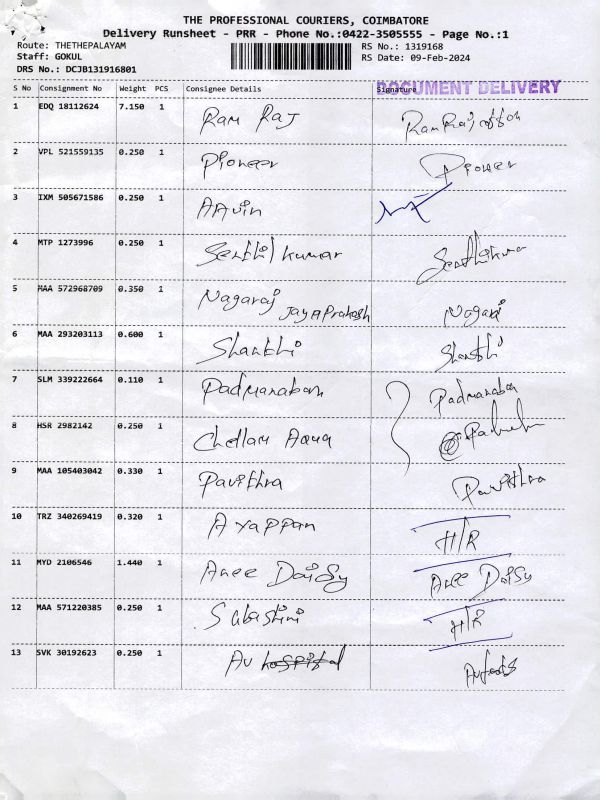 THE PROFESSIONAL COURIERS, COIMBATORE
Delivery Runsheet - PRR - Phone No.:0422-3505555 - Page No.:1
Route: THETHEPALAYAM RS No.: 1319168
Staff: GOKUL RS Date: 09-Feb-2024
DRS No.: DCJB131916801
DOCUMENT DELIVERY
S No Consignment No Weight PCS Consignee Details Signature
1 EDQ 18112624 7.150 1 Ram Raj
2 VPL 521559135 0.250 1 Pioneer Pioneer
3 IXM 505671586 0.250 1 AAvin
4 MTP 1273996 0.250 1 Senthil kumar Senthilkumar
5 MAA 572968709 0.350 1 Nagaraj Jaya Prakash Nagaraj
6 MAA 293203113 0.600 1 Shanthi Shanthi
7 SLM 339222664 0.110 1 Padmanaban Padmanaban
8 HSR 2982142 0.250 1 Chellam Aqua
9 MAA 105403042 0.330 1 Pavithra Pavithra
10 TRZ 340269419 0.320 1 Ayappan H/R
11 MYD 2106546 1.440 1 Anee Daisy Anee Daisy
12 MAA 571220385 0.250 1 Subashini H/R
13 SVK 30192623 0.250 1 AV hospital